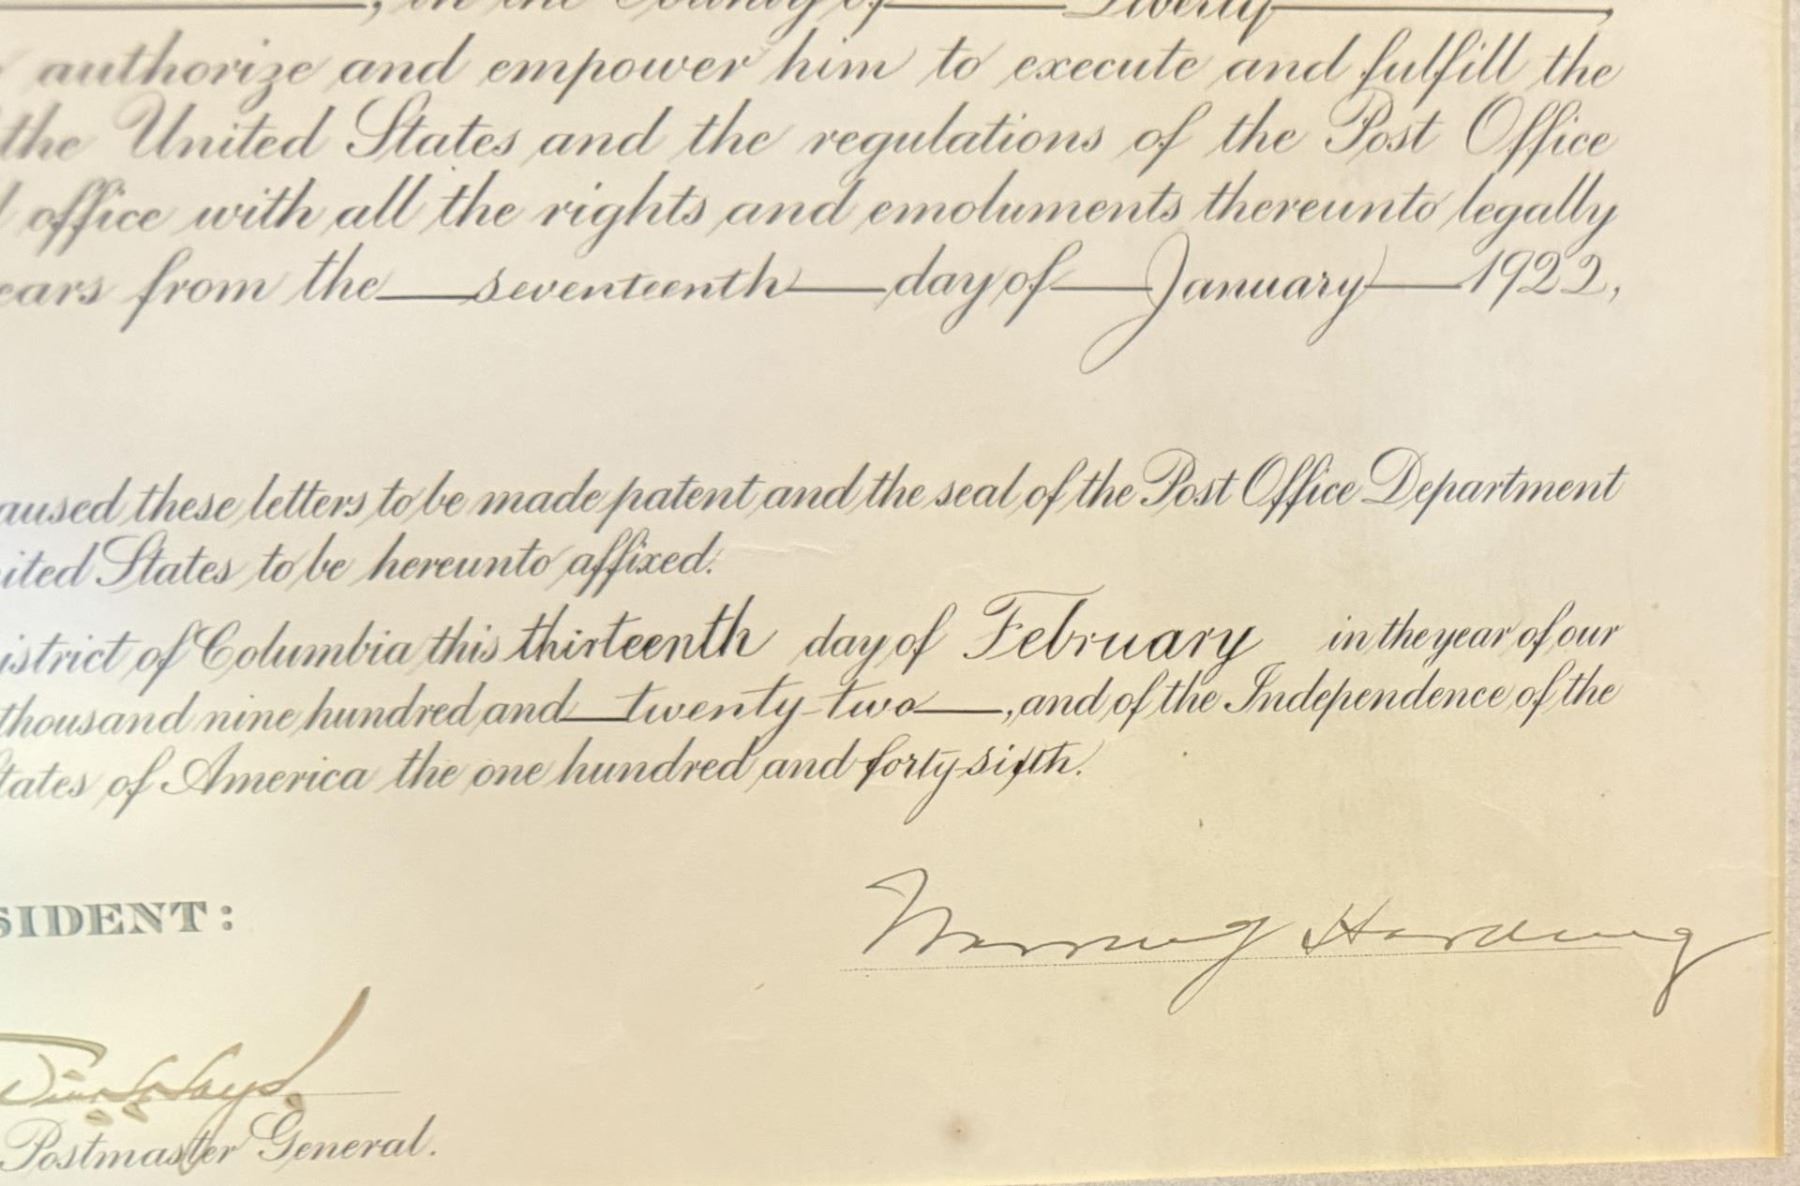 , in the County of Liberty,
authorize and empower him to execute and fulfill the
the United States and the regulations of the Post Office
office with all the rights and emoluments thereunto legally
ears from the seventeenth day of January 1922,
aused these letters to be made patent and the seal of the Post Office Department
ited States to be hereunto affixed.
istrict of Columbia this thirteenth day of February in the year of our
thousand nine hundred and twenty-two, and of the Independence of the
tates of America the one hundred and forty-sixth.
SIDENT:
Warren G Harding
Will H. Hays.
Postmaster General.